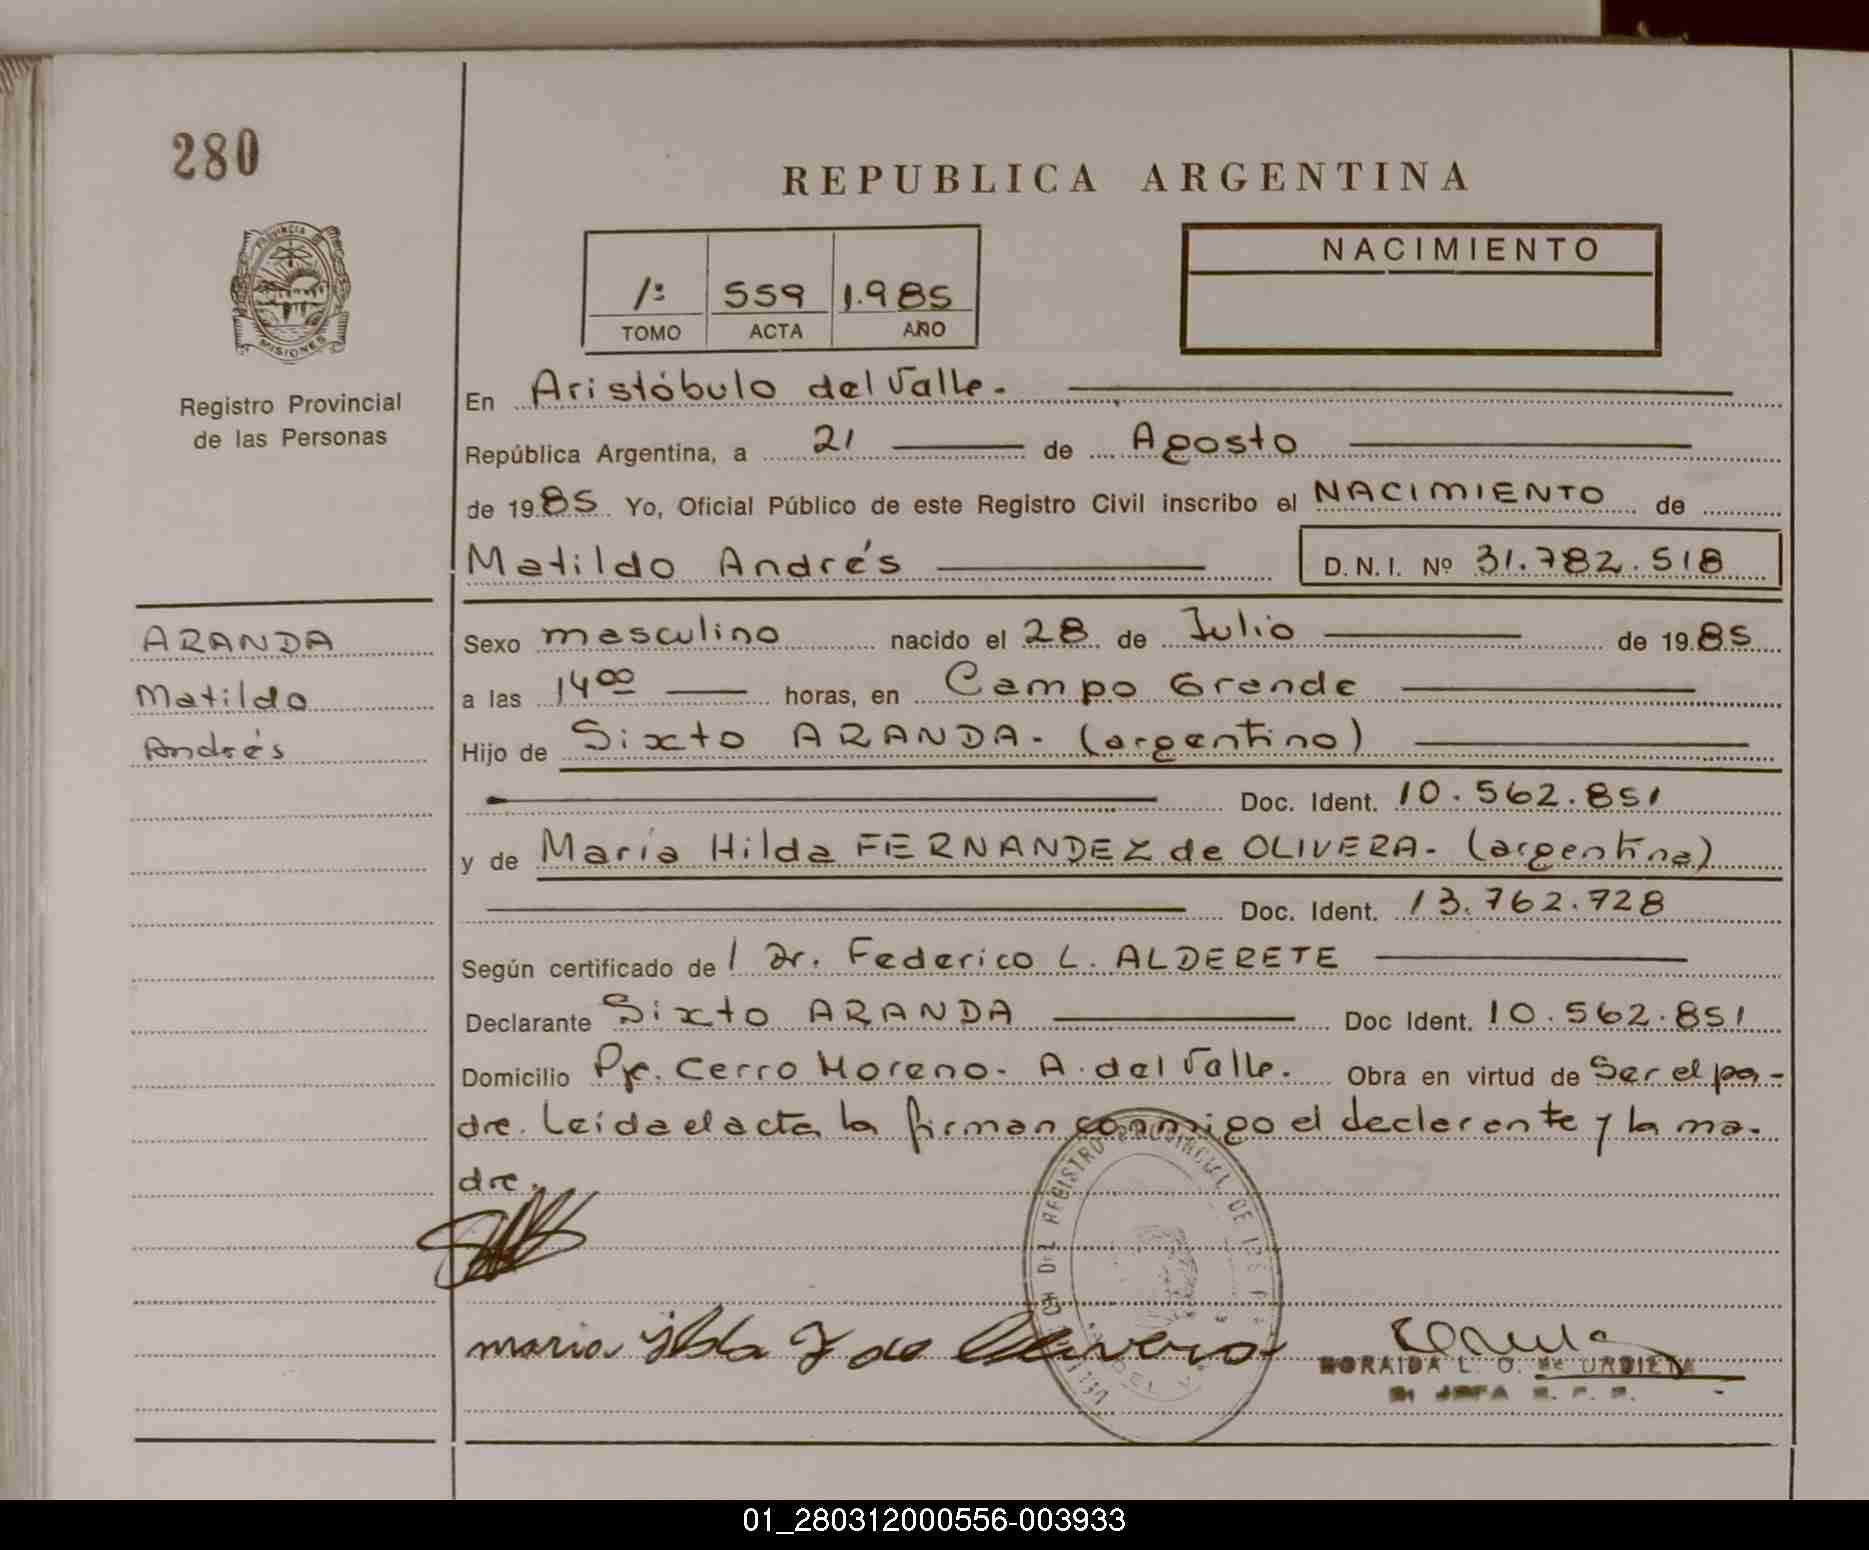 280
REPUBLICA ARGENTINA
PROVINCIA DE
MISIONES
Registro Provincial
de las Personas
1º 559 1.985
TOMO ACTA AÑO
NACIMIENTO
En Aristóbulo del Valle.
República Argentina, a 21 de Agosto
de 1985 Yo, Oficial Público de este Registro Civil inscribo el NACIMIENTO de
Matildo Andrés D.N.I. Nº 31.782.518
ARANDA
Matildo
Andrés
Sexo masculino nacido el 28 de Julio de 1985
a las 1400 horas, en Campo Grande
Hijo de Sixto ARANDA- (argentino)
Doc. Ident. 10.562.851
y de María Hilda FERNANDEZ de OLIVERA- (argentina)
Doc. Ident. 13.762.728
Según certificado de l Dr. Federico L. ALDERETE
Declarante Sixto ARANDA Doc Ident. 10.562.851
Domicilio Pje. Cerro Moreno- A. del Valle. Obra en virtud de Ser el pa-
dre. Leída el acta la firman conmigo el declarante y la ma-
dre.
DEL REGISTRO PROVINCIAL DE
maria ilda F de Olivera
L. O. de URDIETA
JEFA
01_280312000556-003933